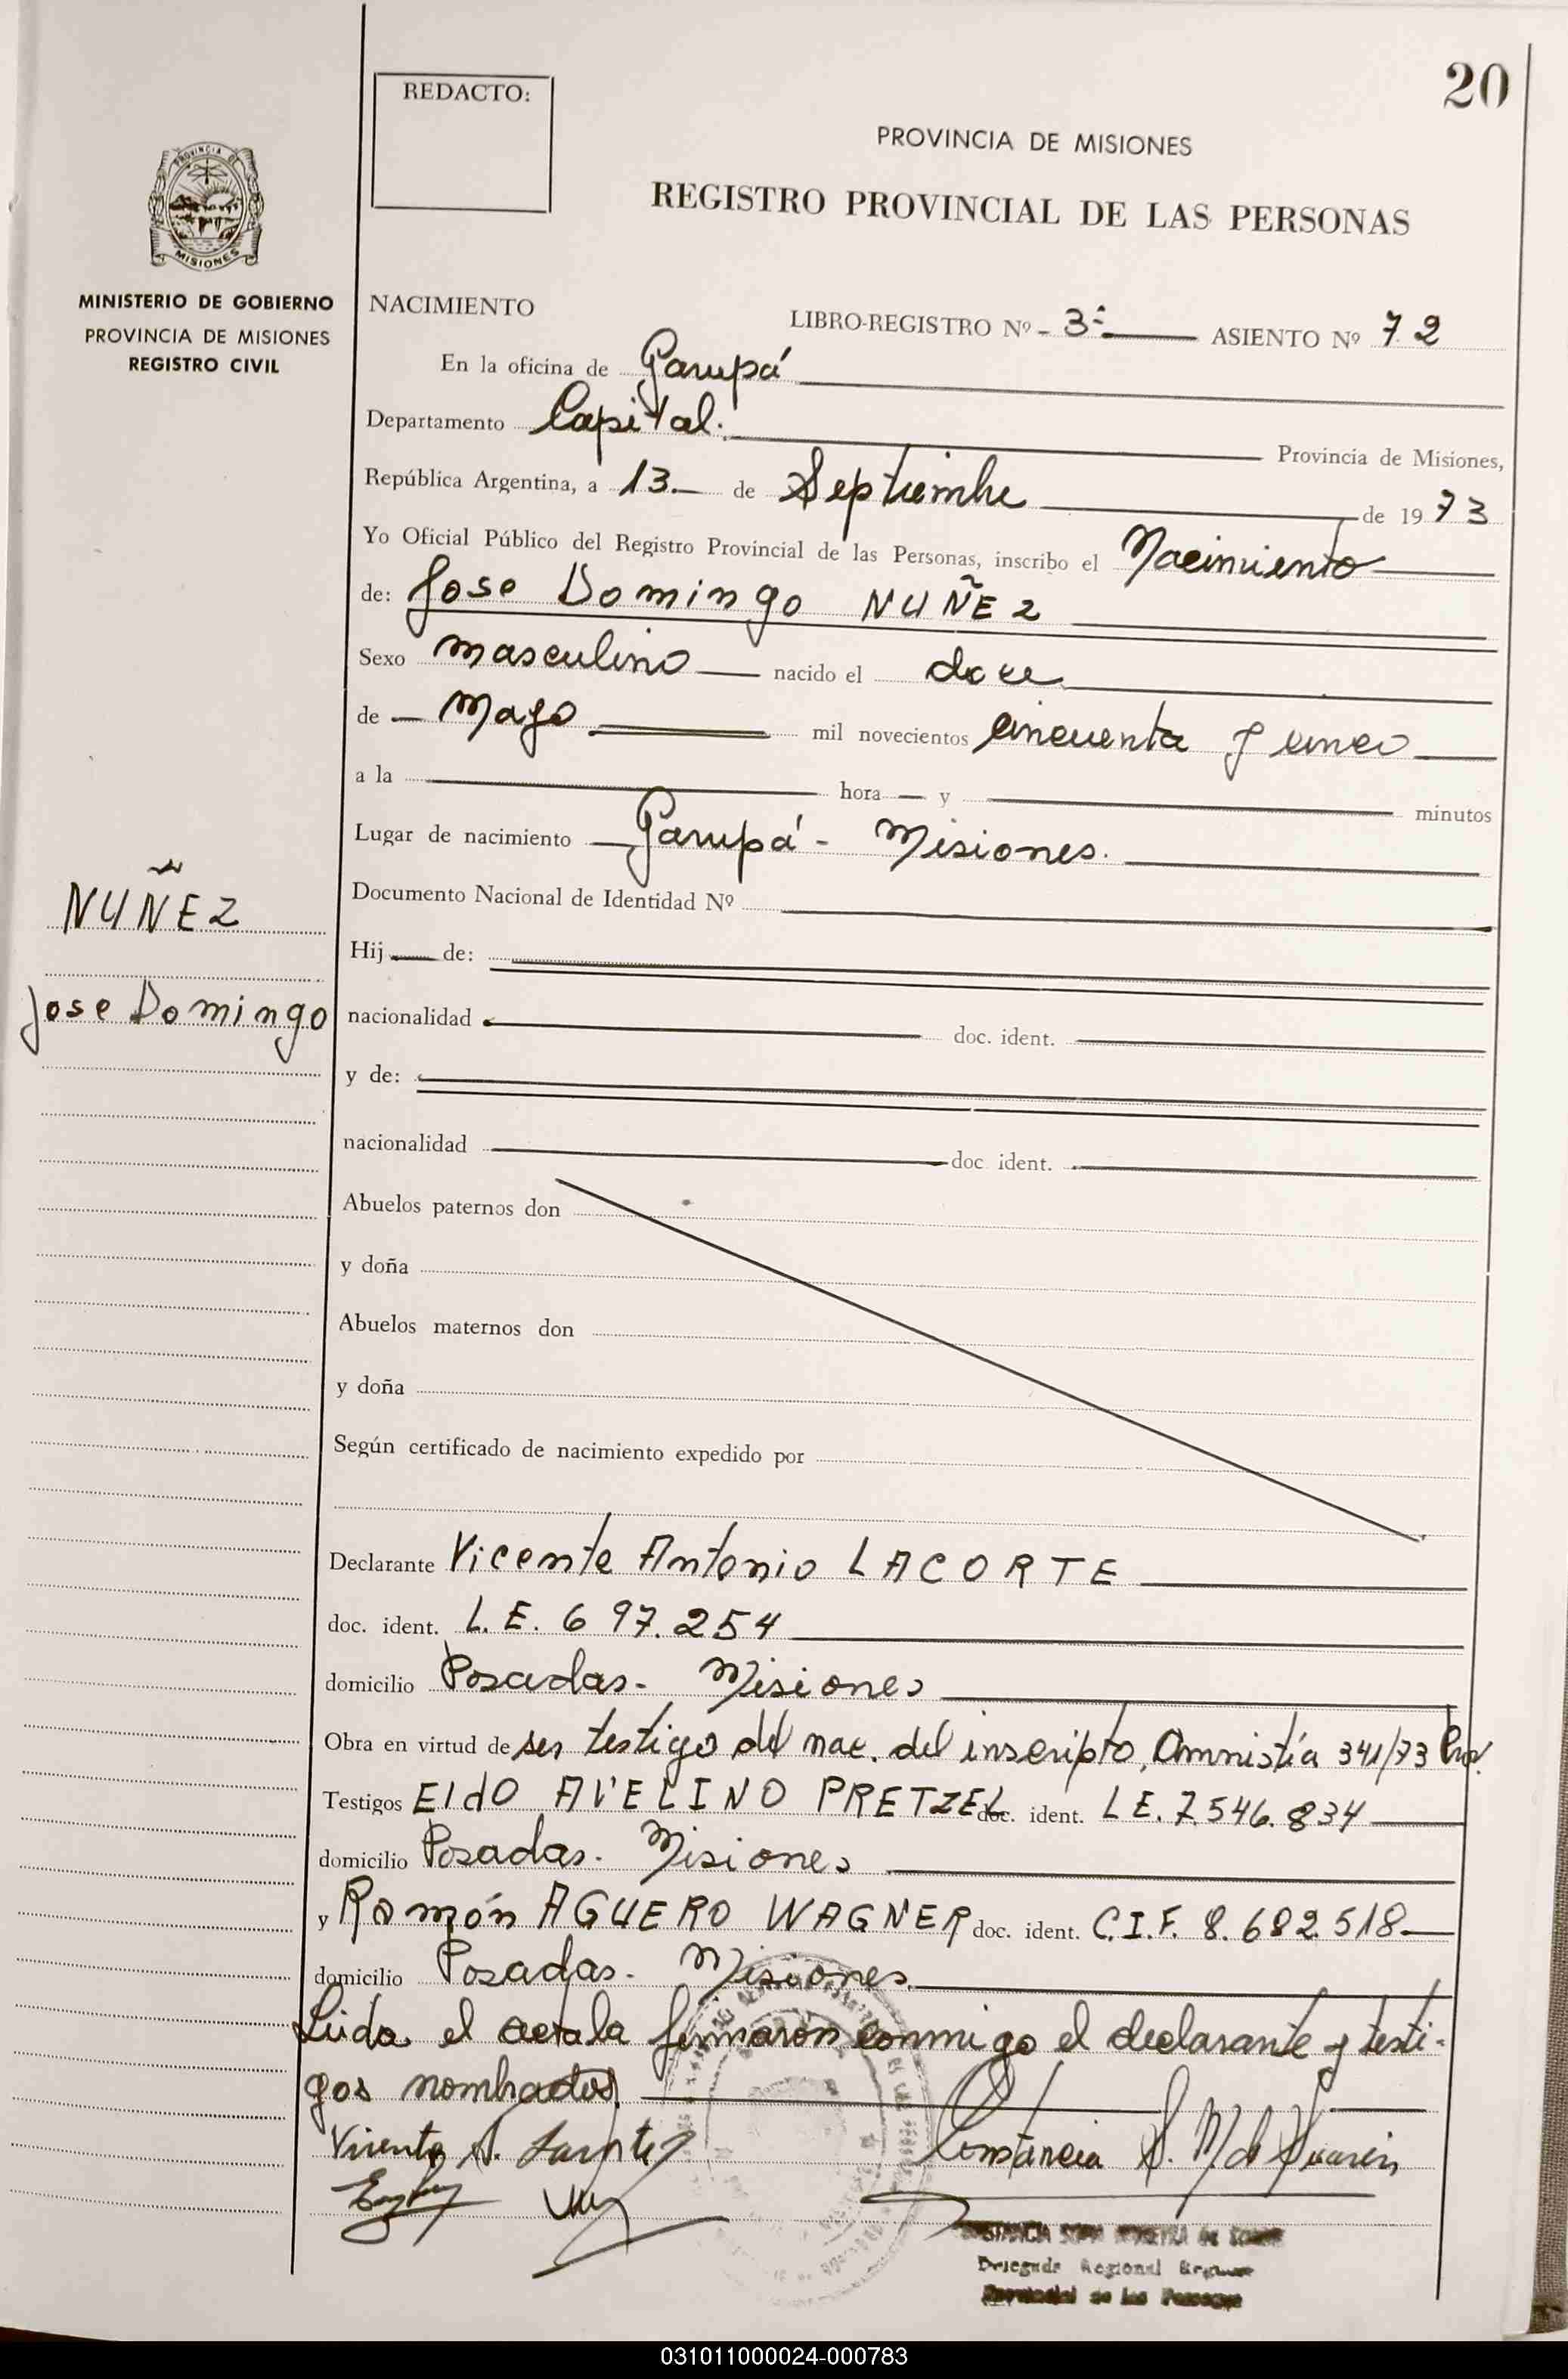 20
REDACTO:
PROVINCIA DE MISIONES
REGISTRO PROVINCIAL DE LAS PERSONAS
PROVINCIA DE
MISIONES
MINISTERIO DE GOBIERNO
PROVINCIA DE MISIONES
REGISTRO CIVIL
NACIMIENTO
LIBRO-REGISTRO Nº 3º ASIENTO Nº 72
En la oficina de Garupá
Departamento Capital. Provincia de Misiones,
República Argentina, a 13 de Septiembre de 1973
Yo Oficial Público del Registro Provincial de las Personas, inscribo el Nacimiento
de: Jose Domingo NUÑEZ
Sexo masculino nacido el doce
de Mayo mil novecientos cincuenta y cinco
a la hora y minutos
Lugar de nacimiento Garupá - Misiones.
Documento Nacional de Identidad Nº
NUÑEZ
Jose Domingo
Hij de:
nacionalidad doc. ident.
y de:
nacionalidad doc ident.
Abuelos paternos don
y doña
Abuelos maternos don
y doña
Según certificado de nacimiento expedido por
Declarante Vicente Antonio LACORTE
doc. ident. L.E. 697.254
domicilio Posadas - Misiones
Obra en virtud de ser testigo del nac. del inscripto, Amnistía 341/73 Prov.
Testigos EldO AVELINO PRETZEL doc. ident. LE. 7.546.834
domicilio Posadas. Misiones
y Ramón AGUERO WAGNER doc. ident. C.I.F. 8.682.518
domicilio Posadas. Misiones
Leida el acta la firmaron conmigo el declarante y testi-
gos nombrados
Vicente A.
Constancia S. M de
Delegada Regional
Provincial de las Personas
031011000024-000783